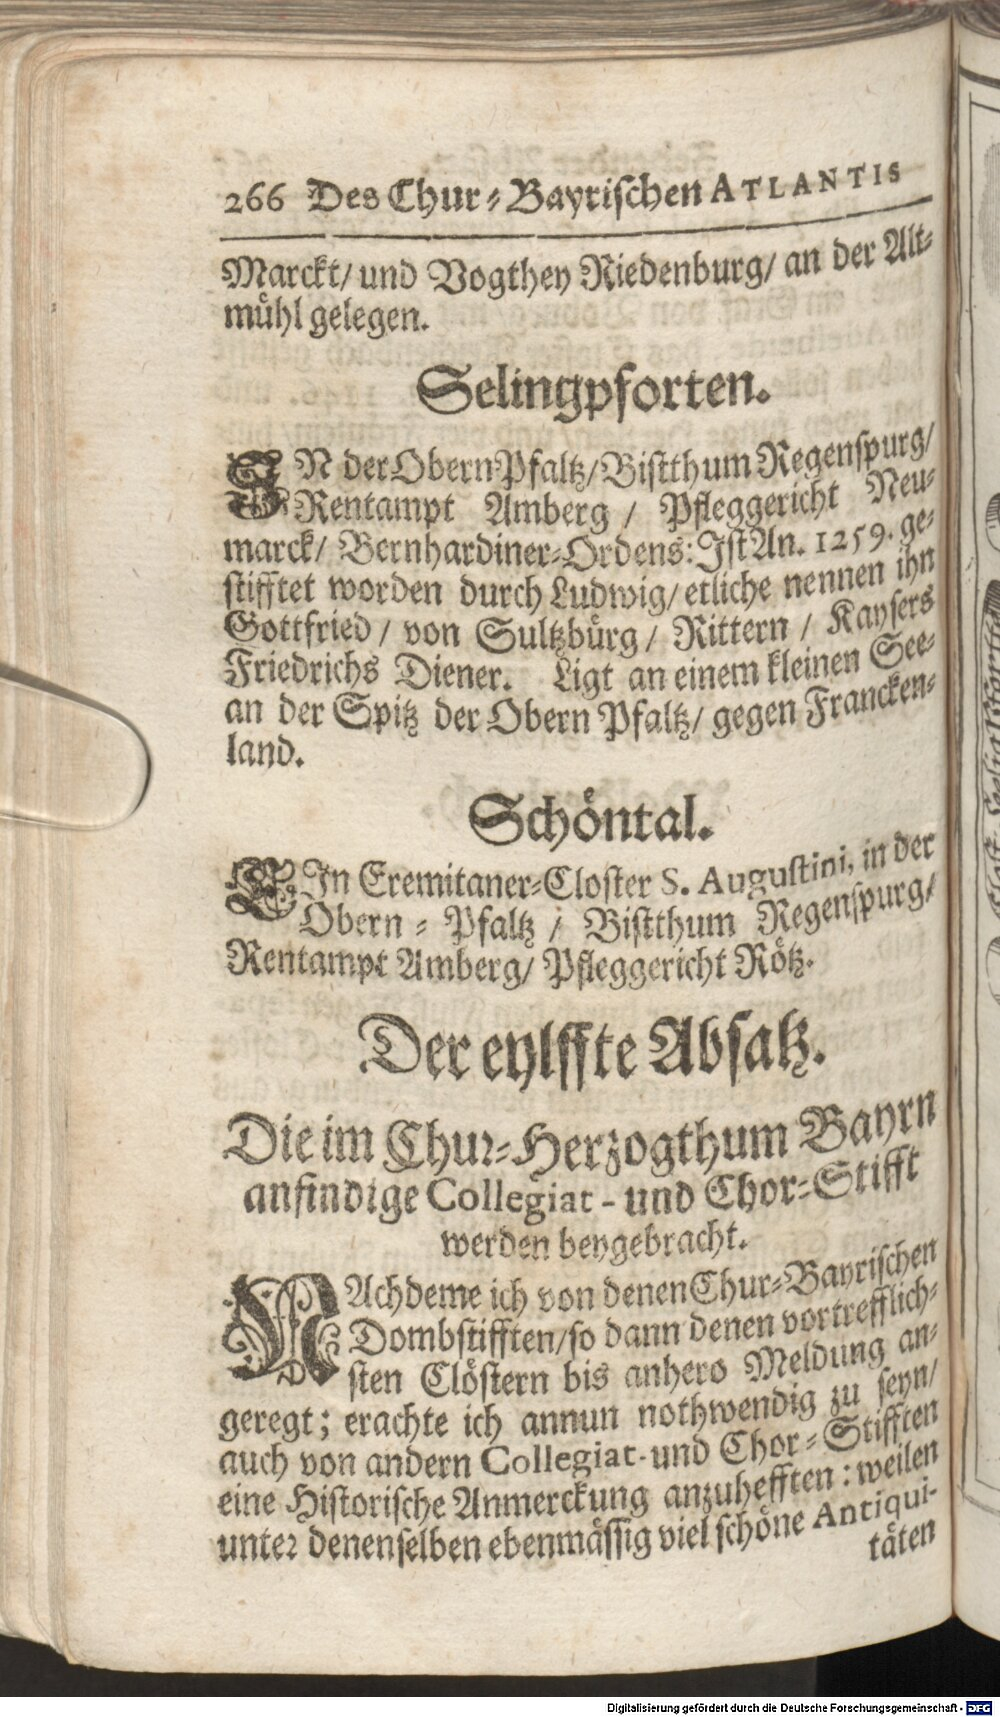 266 Des Chur-Bayrischen ATLANTIS
Marckt/ und Vogthey Riedenburg/ an der Alt-
mühl gelegen.
Selingpforten.
IN der Obern Pfaltz/ Bistthum Regenspurg/
Rentampt Amberg / Pfleggericht Neu-
marck/ Bernhardiner-Ordens: Ist An. 1259. ge-
stifftet worden durch Ludwig/ etliche nennen ihn
Gottfried / von Sultzbürg / Rittern / Kaysers
Friedrichs Diener. Ligt an einem kleinen See-
an der Spitz der Obern Pfaltz/ gegen Francken-
land.
Schöntal.
EIn Eremitaner-Closter S. Augustini, in der
Obern-Pfaltz / Bistthum Regenspurg/
Rentampt Amberg/ Pfleggericht Rötz.
Der eylffte Absatz.
Die im Chur-Herzogthum Bayrn
anfindige Collegiat- und Chor-Stifft
werden beygebracht.
NAchdeme ich von denen Chur-Bayrischen
Dombstifften/ so dann denen vortrefflich-
sten Clöstern bis anhero Meldung an-
geregt; erachte ich annun nothwendig zu seyn/
auch von andern Collegiat- und Chor-Stifften
eine Historische Anmerckung anzuhefften: weilen
unter denenselben ebenmässig viel schöne Antiqui-
täten
Digitalisierung gefördert durch die Deutsche Forschungsgemeinschaft - DFG